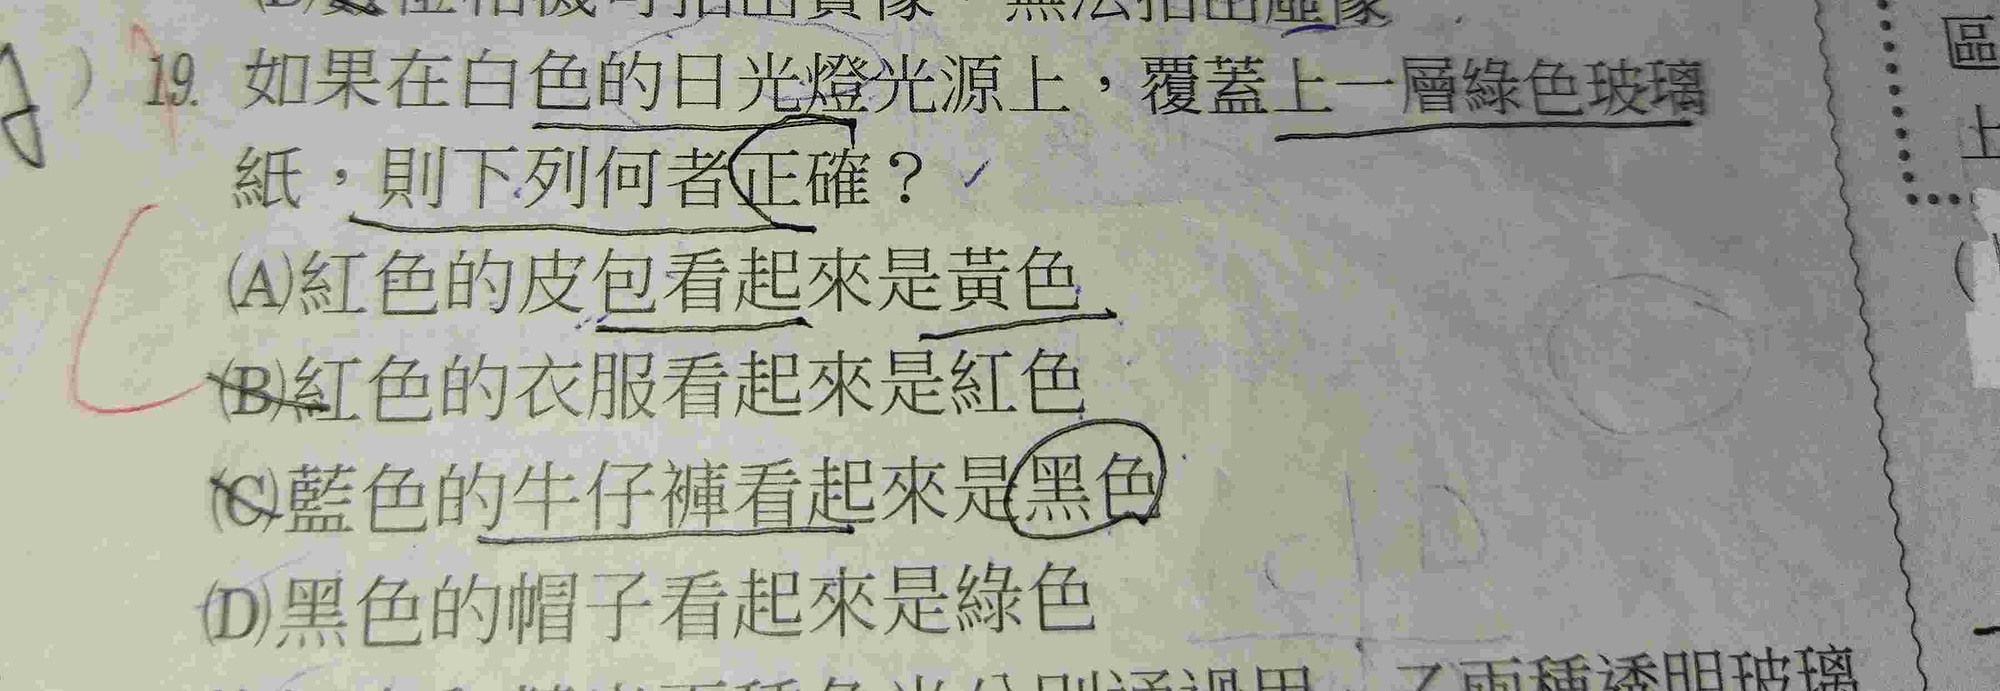 無法拍出虛像
19. 如果在白色的日光燈光源上，覆蓋上一層綠色玻璃
紙，則下列何者正確？
(A)紅色的皮包看起來是黃色
(B)紅色的衣服看起來是紅色
(C)藍色的牛仔褲看起來是黑色
(D)黑色的帽子看起來是綠色
兩種透明玻璃
區
上